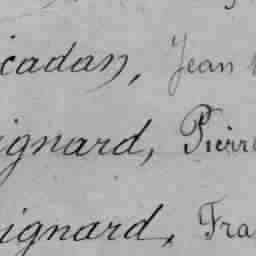 icadan, Jean
ignard, Pierre
ignard, Fra